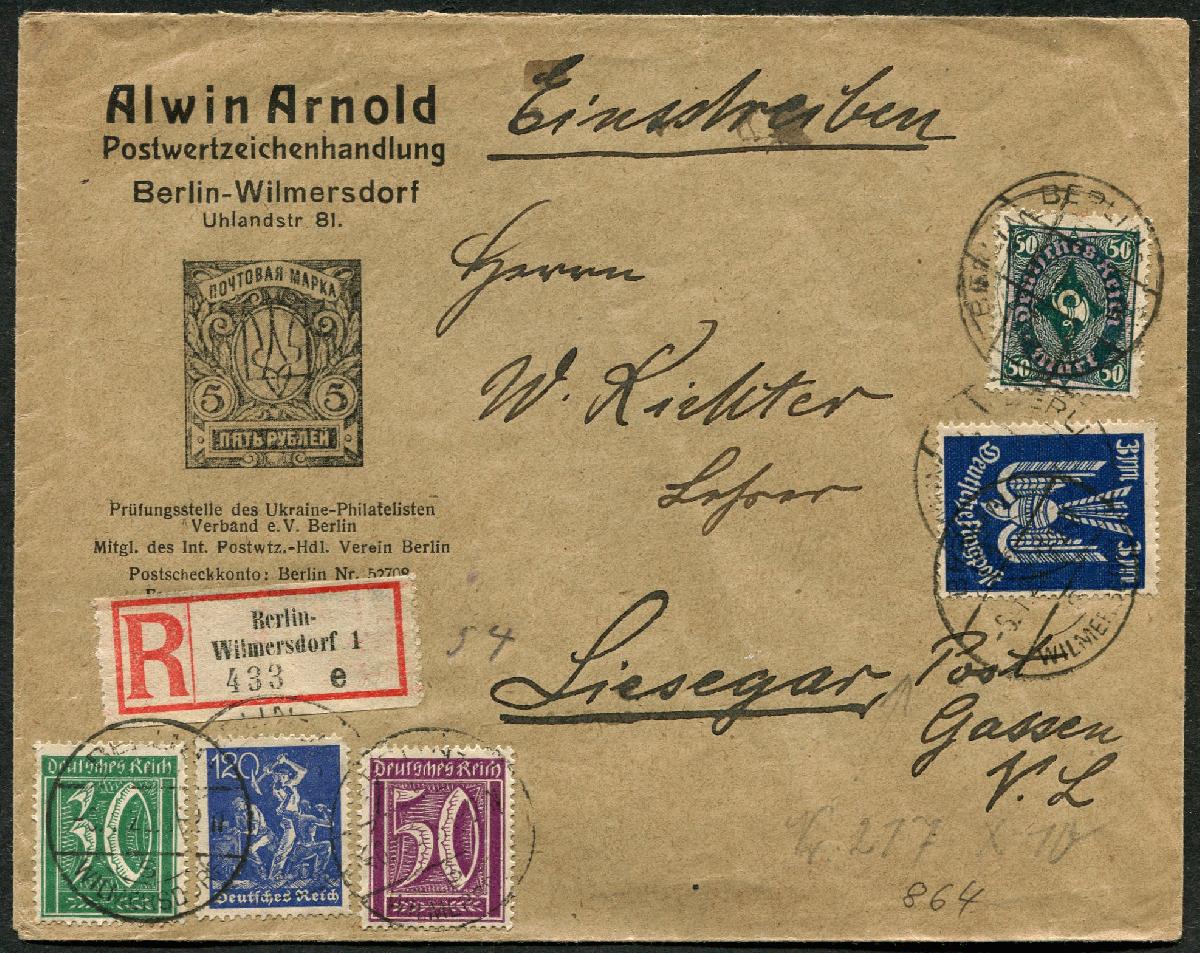 Alwin Arnold
Postwertzeichenhandlung
Berlin-Wilmersdorf
Uhlandstr 81.
ПОЧТОВАЯ МАРКА
5 5
ПЯТЬ РУБЛЕЙ
Prüfungsstelle des Ukraine-Philatelisten
Verband e.V. Berlin
Mitgl. des Int. Postwtz.-Hdl. Verein Berlin
Postscheckkonto: Berlin Nr. 52708
R
Berlin-
Wilmersdorf 1
433 e
Einschreiben
Herrn
W. Richter
Lehrer
Liesegar, Post
Gassen
N. L
54
864
BERLIN
50 50
Deutsches Reich
50 50
BERLIN
3 M 3 M
Deutsches Reich
WILMERS
Deutsches Reich
30
WILMERSDORF
120
Deutsches Reich
Deutsches Reich
50